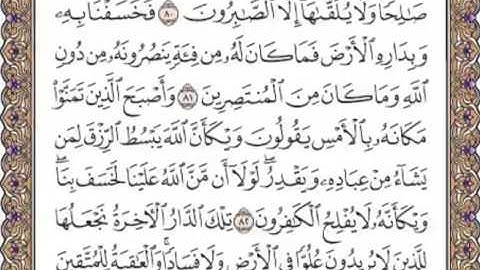 صَٰلِحًا وَلَا يُلَقَّىٰهَآ إِلَّا ٱلصَّٰبِرُونَ ٨٠ فَخَسَفْنَا بِهِۦ
وَبِدَارِهِ ٱلْأَرْضَ فَمَا كَانَ لَهُۥ مِن فِئَةٍ يَنصُرُونَهُۥ مِن دُونِ
ٱللَّهِ وَمَا كَانَ مِنَ ٱلْمُنتَصِرِينَ ٨١ وَأَصْبَحَ ٱلَّذِينَ تَمَنَّوْا۟
مَكَانَهُۥ بِٱلْأَمْسِ يَقُولُونَ وَيْكَأَنَّ ٱللَّهَ يَبْسُطُ ٱلرِّزْقَ لِمَن
يَشَآءُ مِنْ عِبَادِهِۦ وَيَقْدِرُ ۖ لَوْلَآ أَن مَّنَّ ٱللَّهُ عَلَيْنَا لَخَسَفَ بِنَا ۖ
وَيْكَأَنَّهُۥ لَا يُفْلِحُ ٱلْكَٰفِرُونَ ٨٢ تِلْكَ ٱلدَّارُ ٱلْءَاخِرَةُ نَجْعَلُهَا
لِلَّذِينَ لَا يُرِيدُونَ عُلُوًّا فِى ٱلْأَرْضِ وَلَا فَسَادًا ۚ وَٱلْعَٰقِبَةُ لِلْمُتَّقِينَ